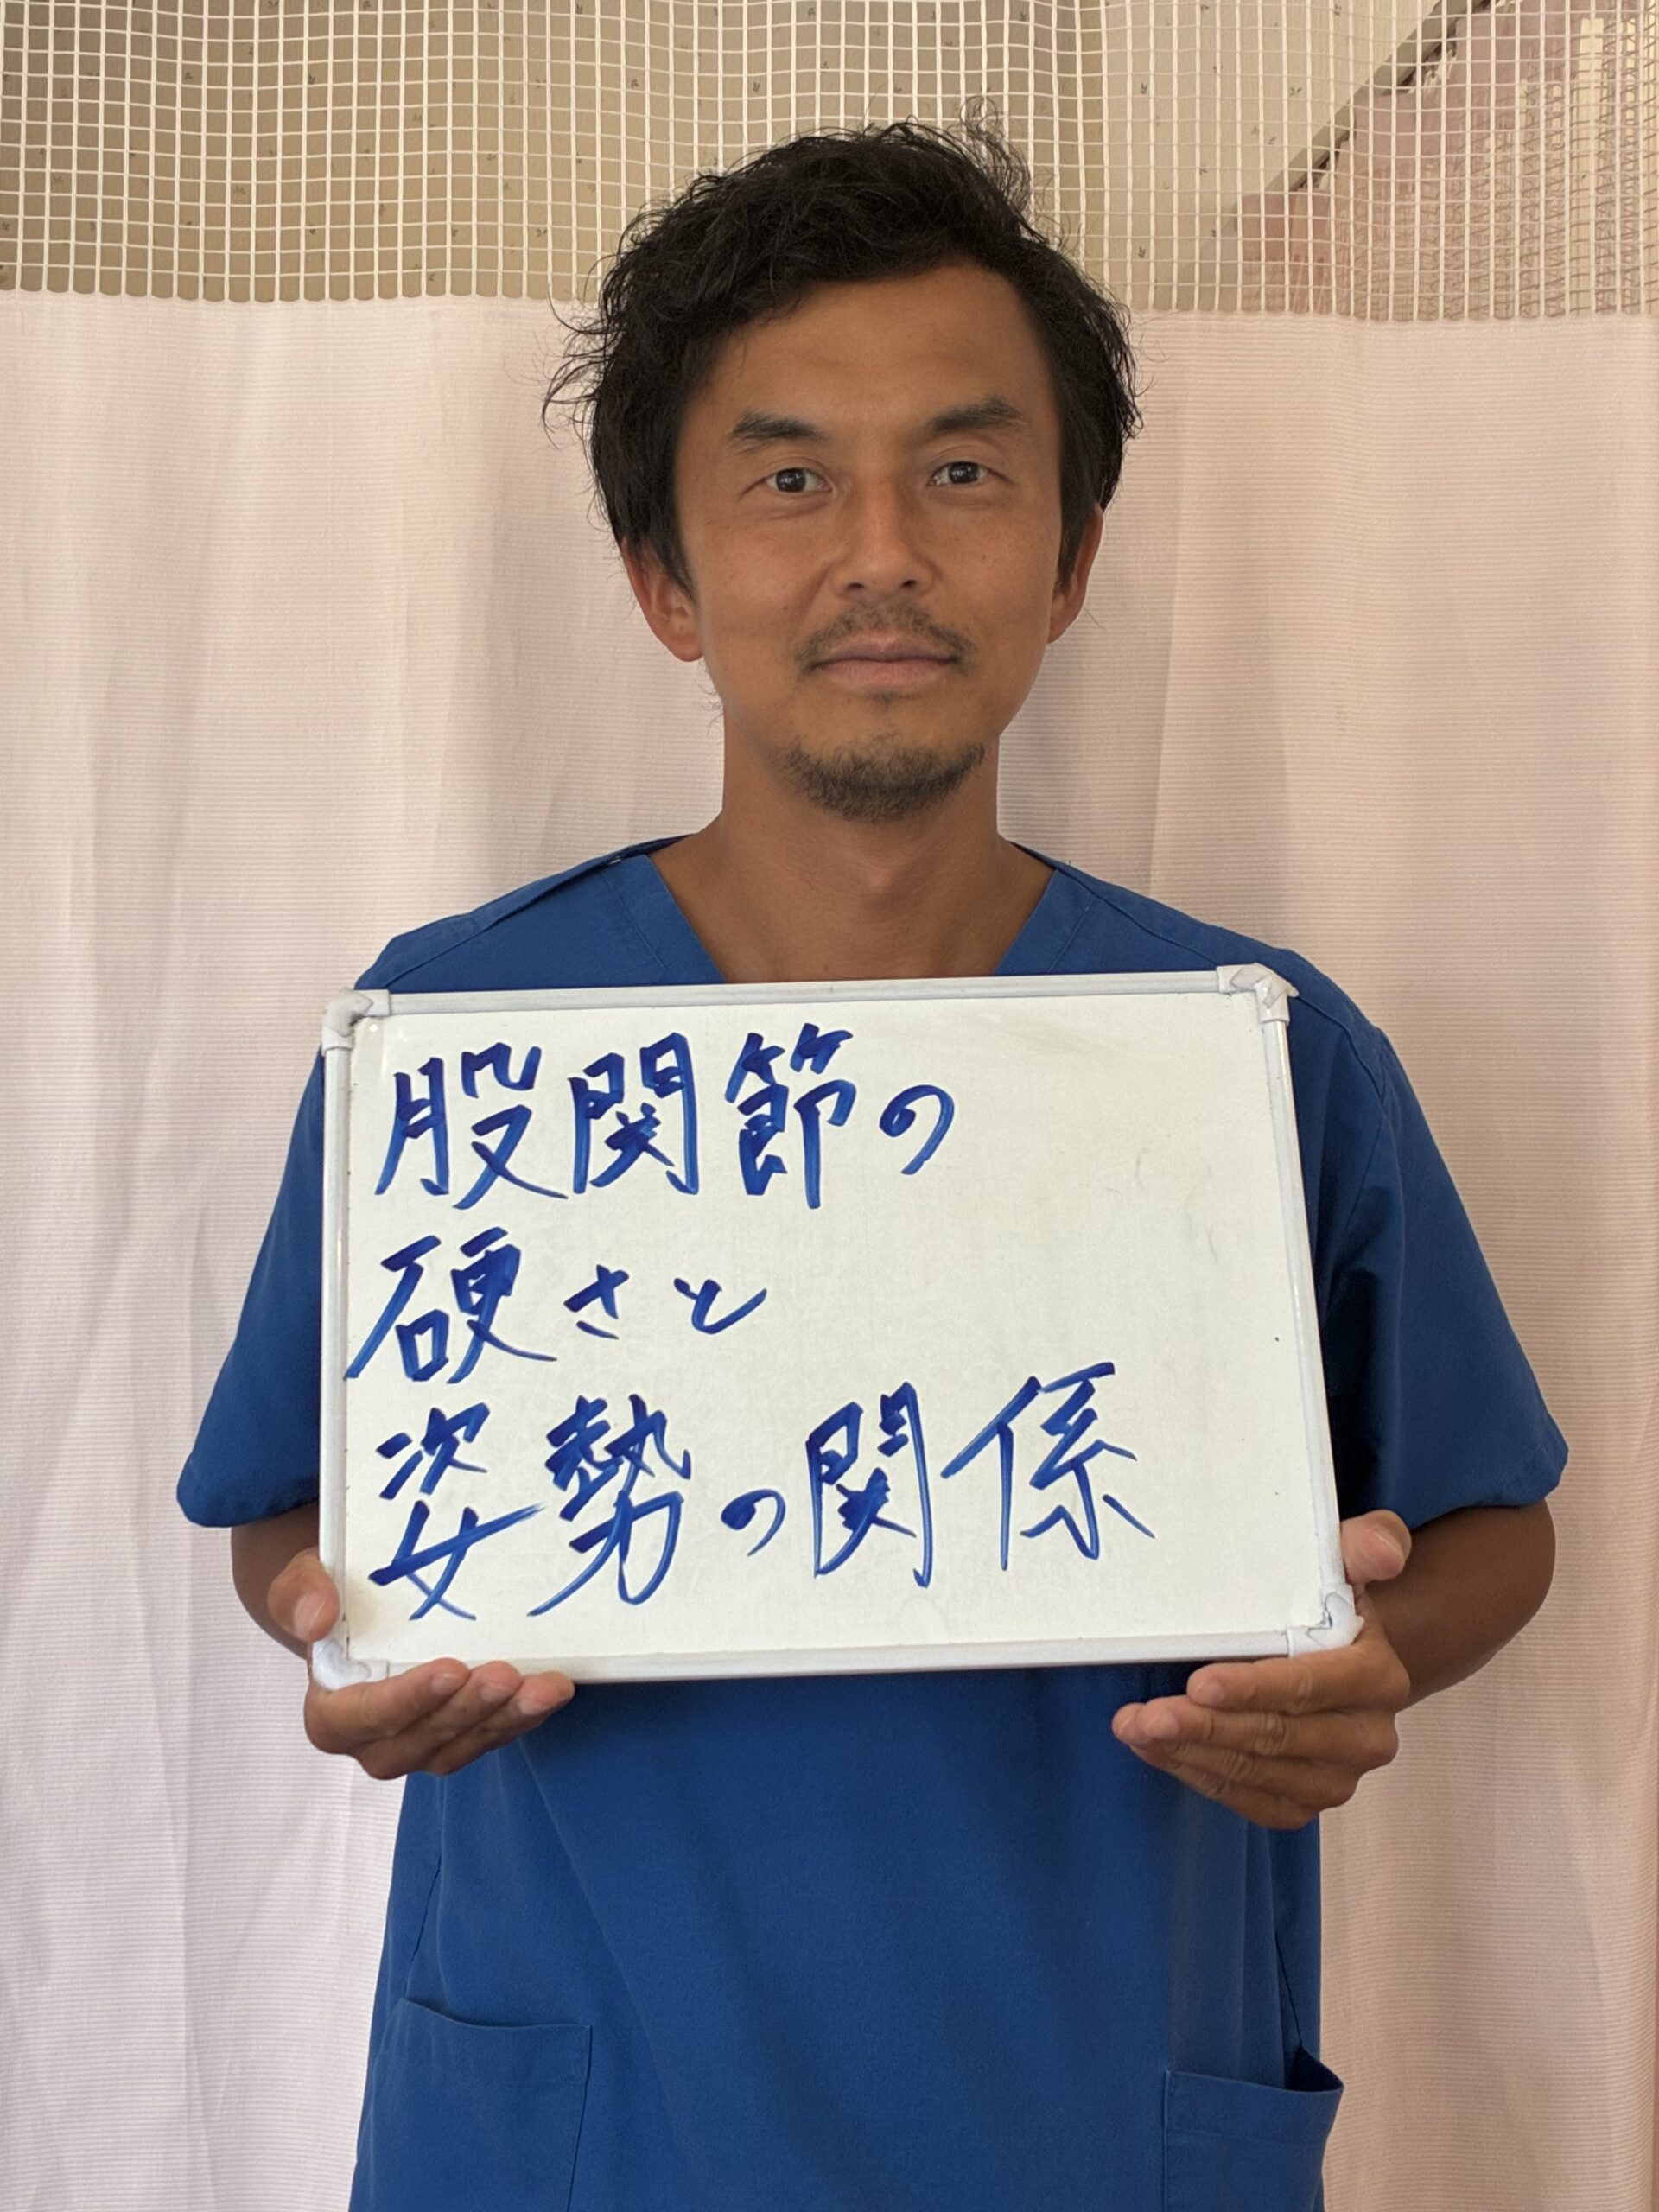 股関節の
硬さと
姿勢の関係